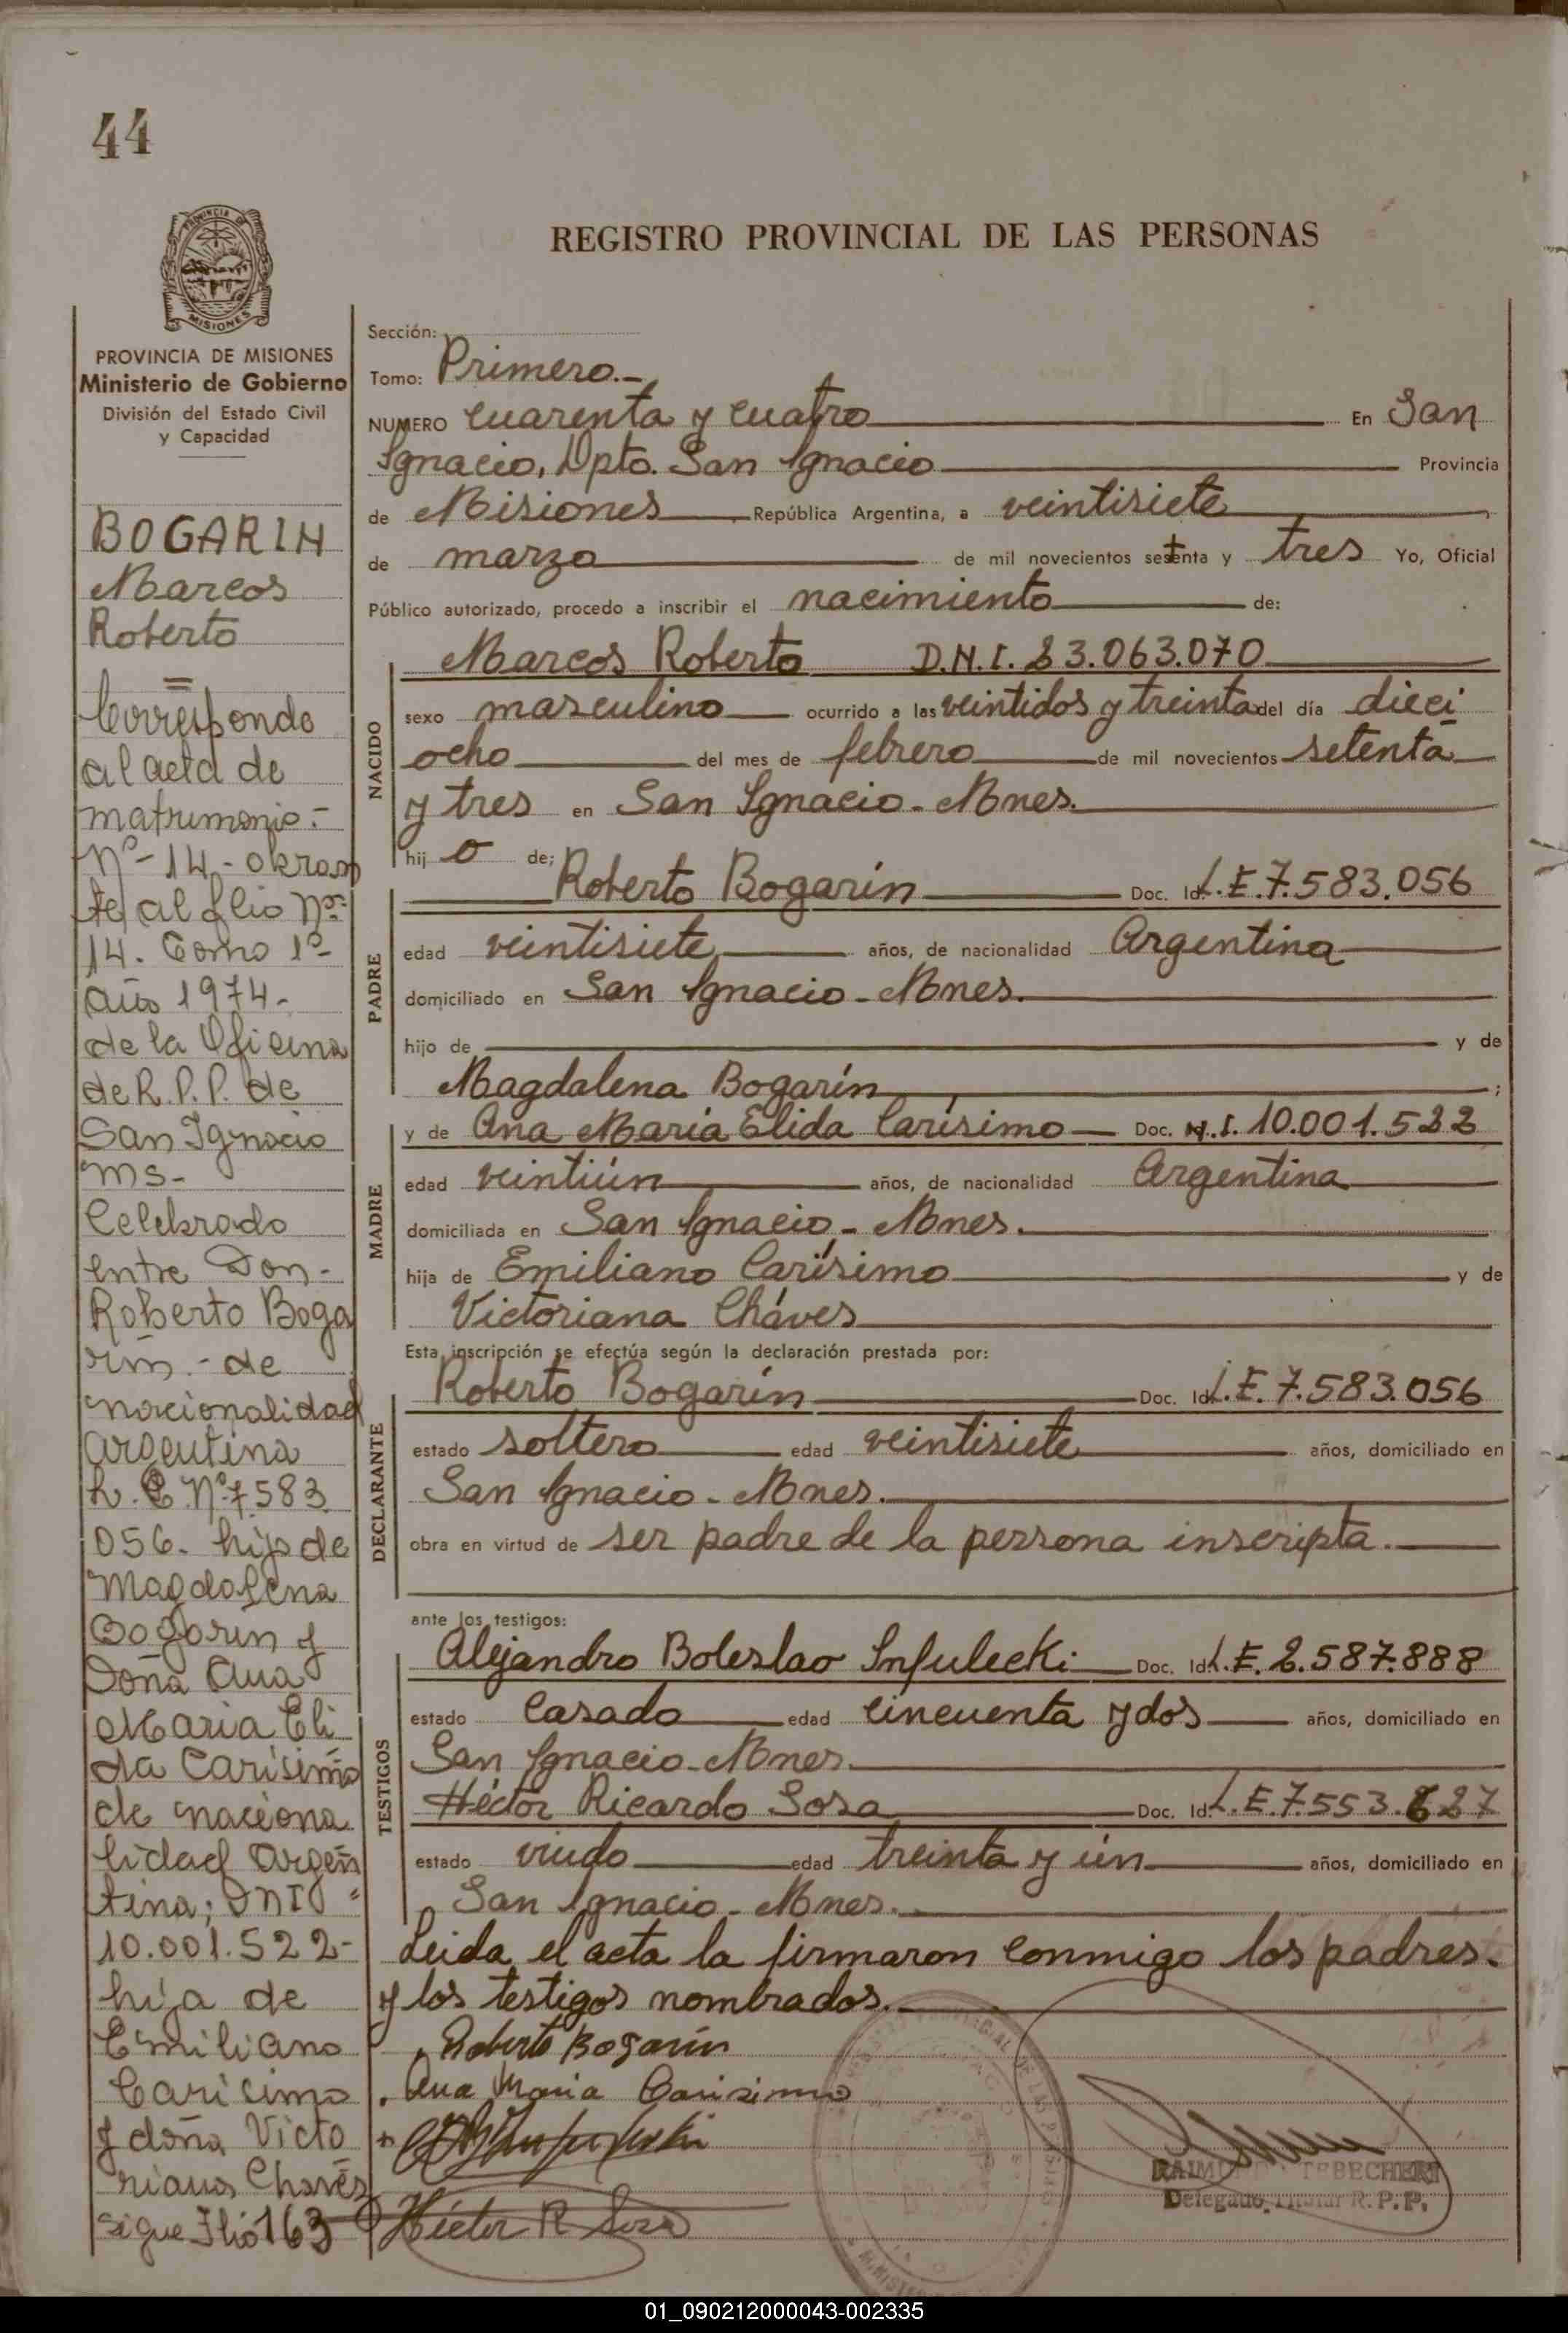 44
PROVINCIA DE
MISIONES
PROVINCIA DE MISIONES
Ministerio de Gobierno
División del Estado Civil
y Capacidad
BOGARIN
Marcos
Roberto
=
Corresponde
al acta de
matrimonio.-
Nº-14-obran
te al flio Nº
14. Tomo 1º-
año 1974-
de la Oficina
de R.P.P. de
San Ignacio
Ms-
Celebrado
entre Don-
Roberto Boga
rin.- de
nacionalidad
argentina
L.E Nº 7.583
056. hijo de
Magdalena
Bogarin y
Doña Ana
Maria Eli
da Carísimo
de naciona
lidad Argen
tina; DNI
10.001.522-
hija de
Emiliano
Carisimo
y doña Victo
riana Chavés
sigue Flio 163
REGISTRO PROVINCIAL DE LAS PERSONAS
Sección:
Tomo: Primero.-
NUMERO cuarenta y cuatro En San
Ignacio, Dpto. San Ignacio Provincia
de Misiones República Argentina, a veintisiete
de marzo de mil novecientos setenta y tres Yo, Oficial
Público autorizado, procedo a inscribir el nacimiento de:
NACIDO
Marcos Roberto D.N.I. 23.063.070
sexo masculino ocurrido a las veintidos y treinta del día dieci
ocho del mes de febrero de mil novecientos setenta
y tres en San Ignacio - Mnes.
hij o de:
PADRE
Roberto Bogarín Doc. Id. L.E. 7.583.056
edad veintisiete años, de nacionalidad Argentina
domiciliado en San Ignacio - Mnes.
hijo de y de
Magdalena Bogarín ;
MADRE
y de Ana María Elida Carísimo Doc. N.I. 10.001.522
edad veintiún años, de nacionalidad Argentina
domiciliada en San Ignacio - Mnes.
hija de Emiliano Carísimo y de
Victoriana Cháves
Esta inscripción se efectúa según la declaración prestada por:
DECLARANTE
Roberto Bogarín Doc. Id. L.E. 7.583.056
estado soltero edad veintisiete años, domiciliado en
San Ignacio - Mnes.
obra en virtud de ser padre de la persona inscripta.
ante los testigos:
TESTIGOS
Alejandro Boleslao Infulecki Doc. Id. L.E. 2.587.888
estado Casado edad cincuenta y dos años, domiciliado en
San Ignacio - Mnes.
Héctor Ricardo Sosa Doc. Id. L.E. 7.553.627
estado viudo edad treinta y ún años, domiciliado en
San Ignacio - Mnes.
Leida el acta la firmaron conmigo los padres.
y los testigos nombrados.
Roberto Bogarín
Ana Maria Carisimo
Héctor R Sosa
Delegado Titular R.P.P.
01_090212000043-002335